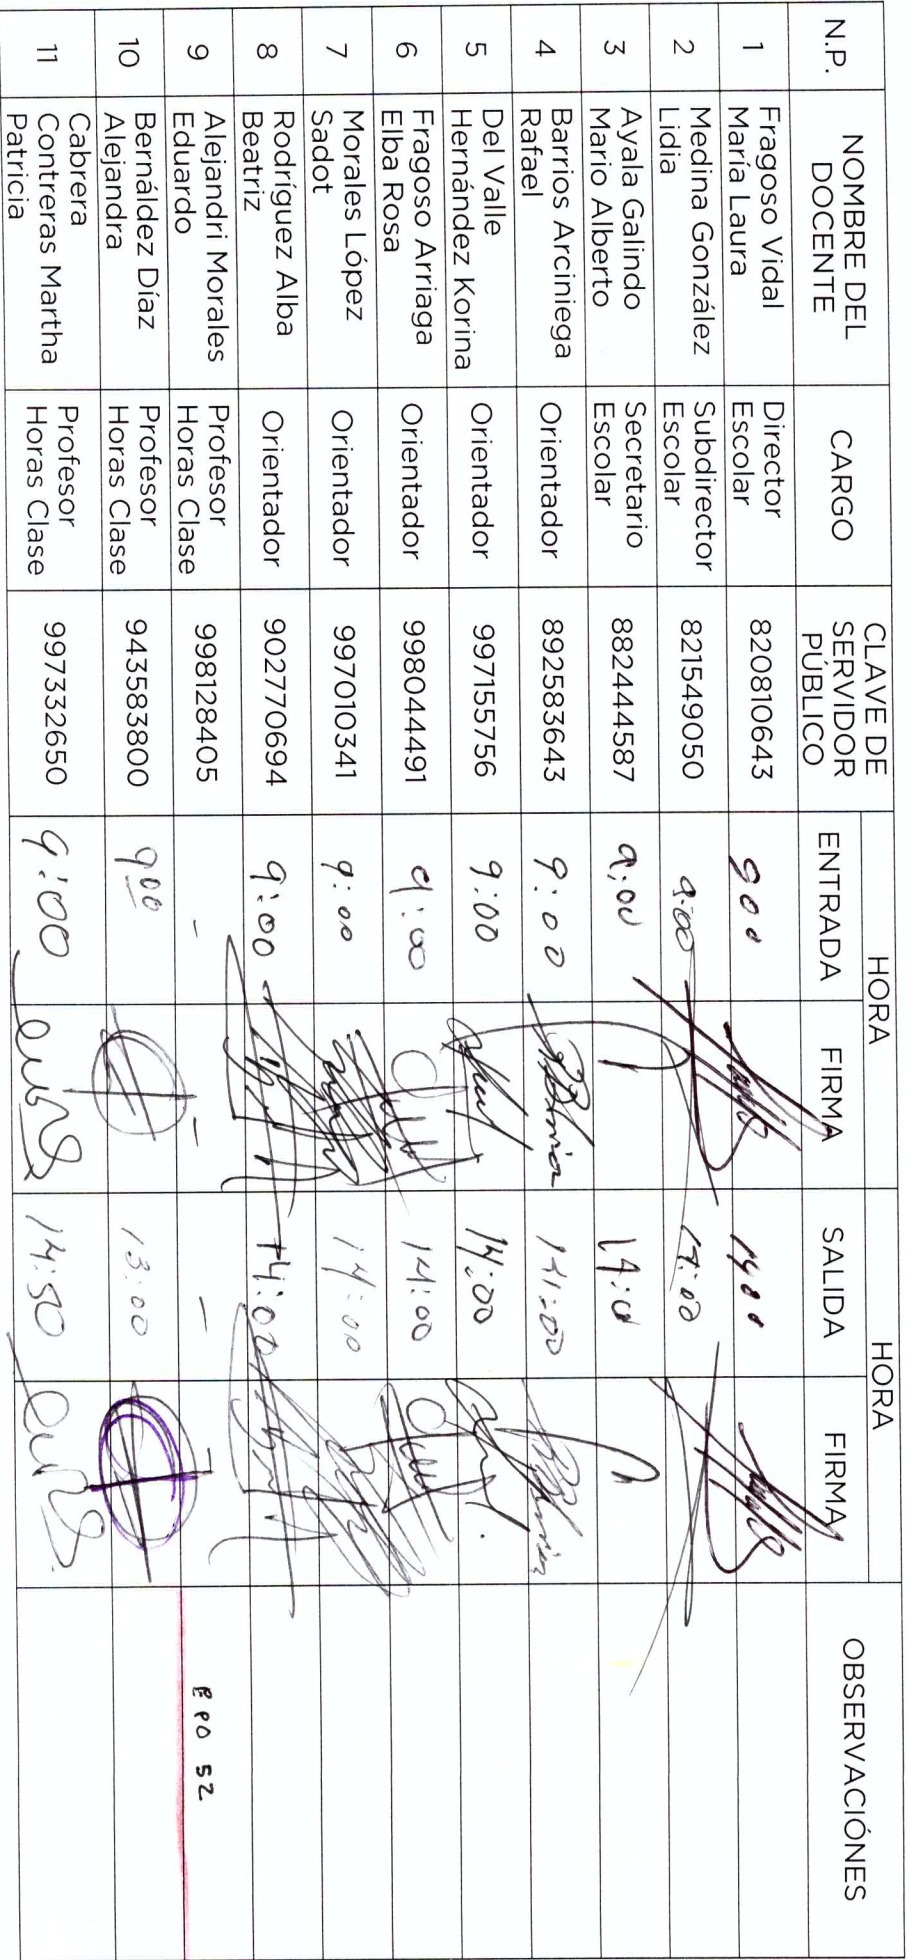 N.P.
NOMBRE DEL
DOCENTE
CARGO
CLAVE DE
SERVIDOR
PÚBLICO
HORA
ENTRADA
FIRMA
HORA
SALIDA
FIRMA
OBSERVACIÓNES
1
Fragoso Vidal
María Laura
Director
Escolar
820810643
900
1400
2
Medina González
Lidia
Subdirector
Escolar
821549050
9:00
3
Ayala Galindo
Mario Alberto
Secretario
Escolar
882444587
9:00
4
Barrios Arciniega
Rafael
Orientador
892583643
9:00
14:00
5
Del Valle
Hernández Korina
Orientador
997155756
9:00
14:00
6
Fragoso Arriaga
Elba Rosa
Orientador
998044491
9:00
14:00
7
Morales López
Sadot
Orientador
997010341
9:00
14:00
8
Rodríguez Alba
Beatriz
Orientador
902770694
9:00
14:00
9
Alejandri Morales
Eduardo
Profesor
Horas Clase
998128405
-
-
-
-
EPO 52
10
Bernáldez Díaz
Alejandra
Profesor
Horas Clase
943583800
900
13:00
11
Cabrera
Contreras Martha
Patricia
Profesor
Horas Clase
997332650
9:00
14:50